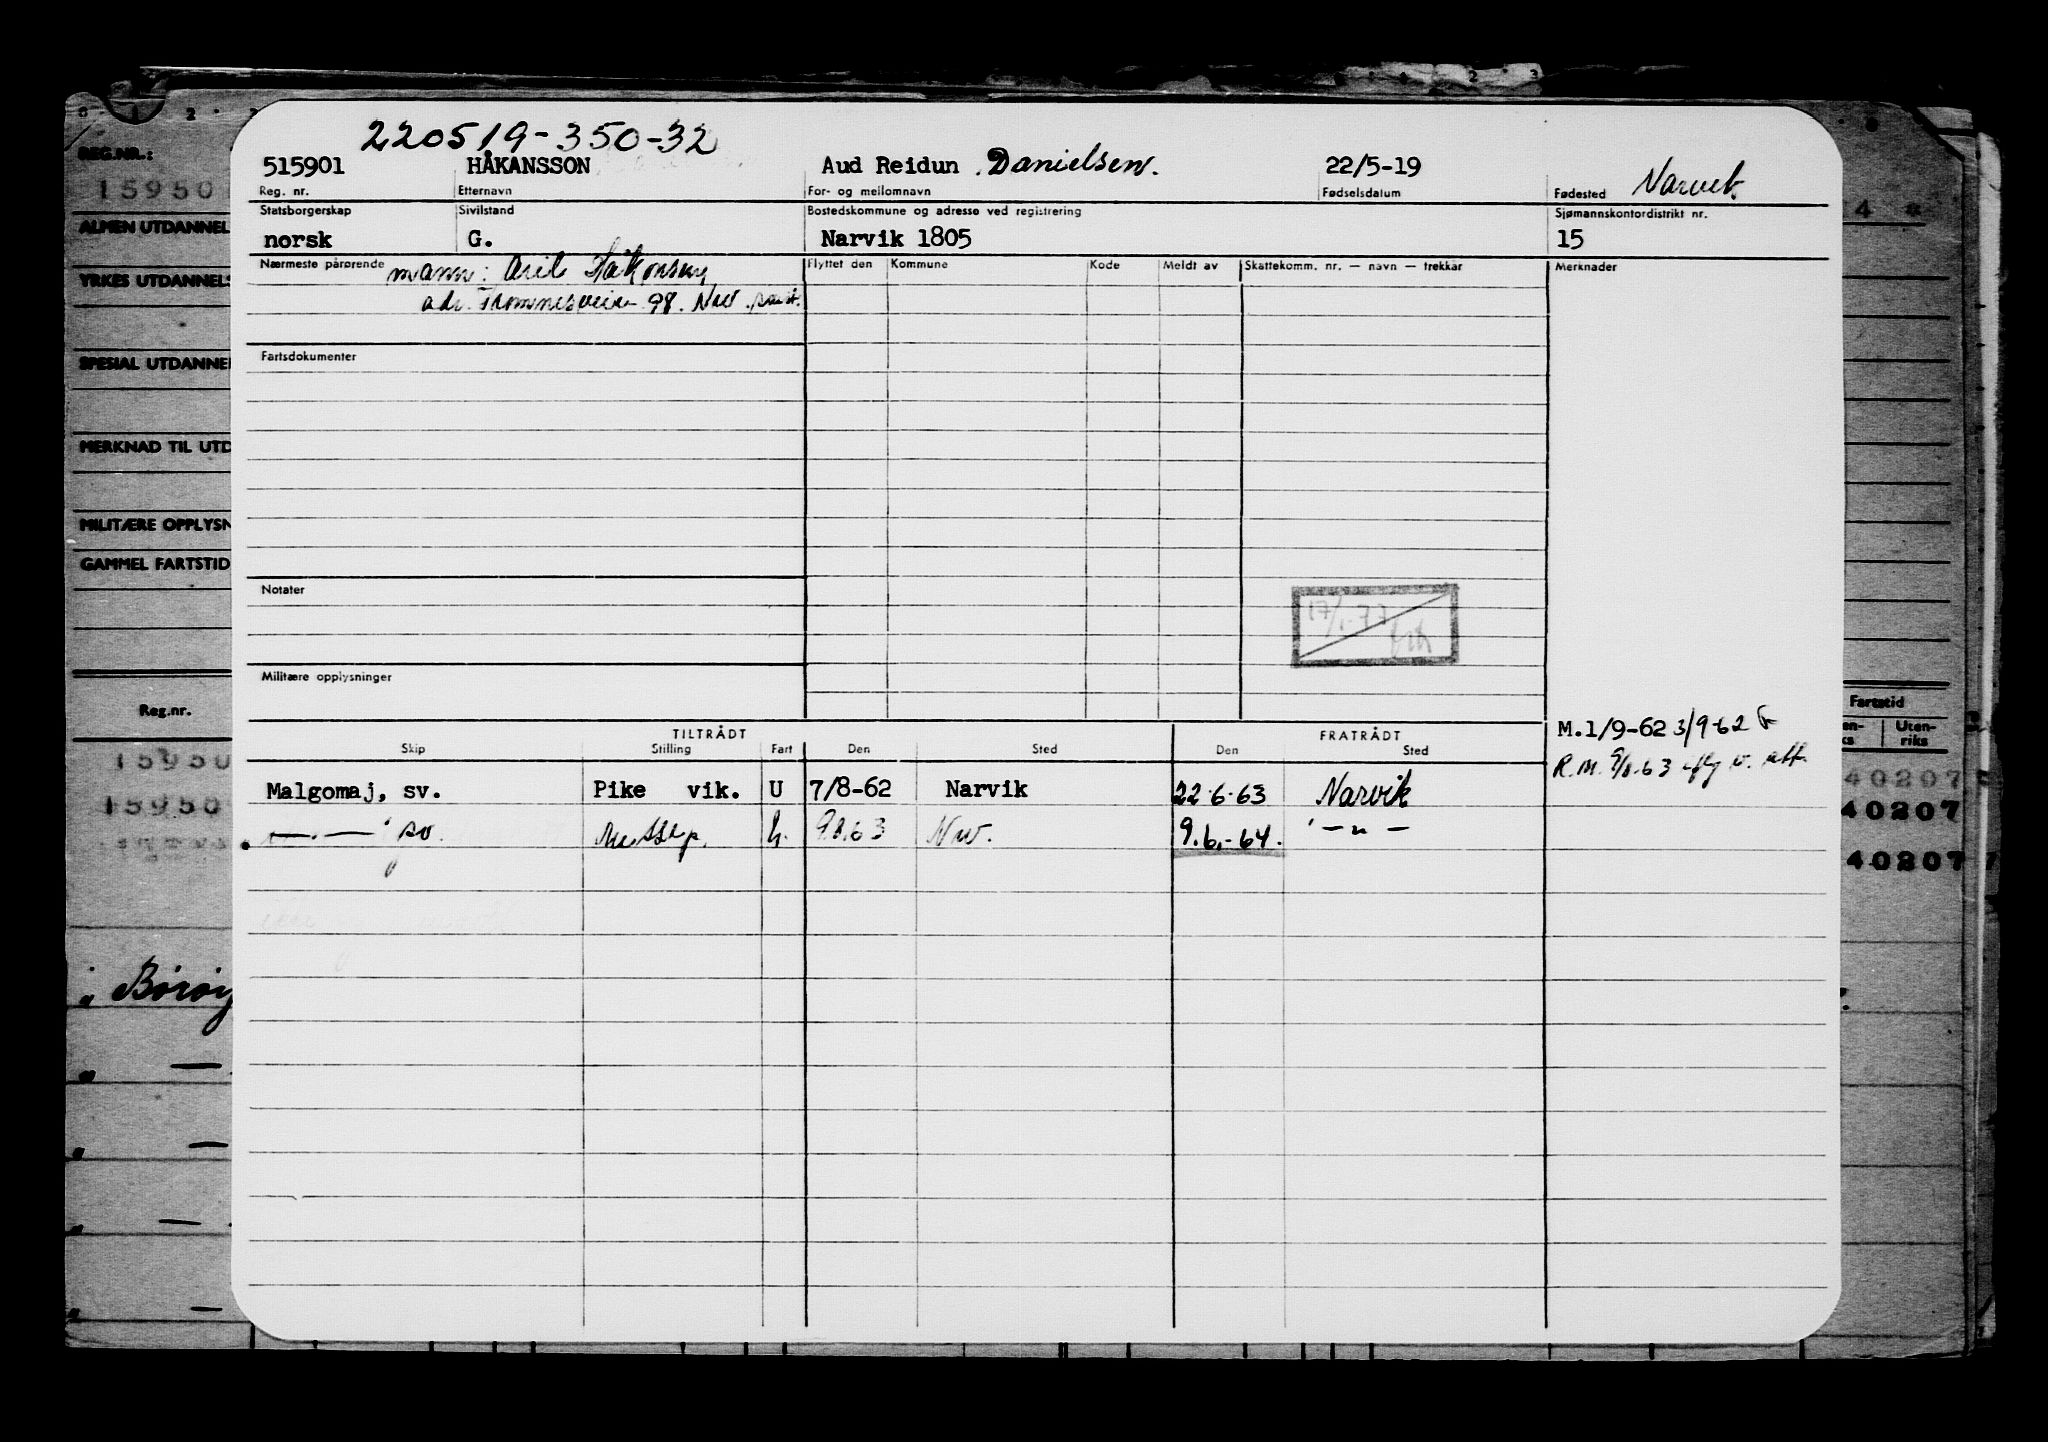 220519-350-32
515901 HÅKANSSON Aud Reidun Danielsen. 22/5-19 Narvik
Reg. nr. Etternavn For- og mellomnavn Fødselsdatum Fødested
Statsborgerskap Sivilstand Bostedskommune og adresse ved registrering Sjømannskontordistrikt nr.
norsk G. Narvik 1805 15
Nærmeste pårørende mann: Flyttet den Kommune Kode Meldt av Skattekomm. nr. — navn — trekkar Merknader
adr. 98.
Fartsdokumenter
Notater
17/1-77
Militære opplysninger
M.1/9-62 3/9-62
TILTRÅDT FRATRÅDT
Skip Stilling Fart Den Sted Den Sted
R.M.
Malgomaj, sv. Pike vik. U 7/8-62 Narvik 22.6.63 Narvik
—.— sv. 9.8.63 Nv. 9.6.-64. -"-
REG.NR.:
15950
ALMEN UTDANNEL
YRKES UTDANNELS
SPESIAL UTDANNE
MERKNAD TIL UTD
MILITÆRE OPPLYSN
GAMMEL FARTSTID
Reg.nr.
15950
15950
Fartstid
Uten-
riks
40207
40207
40207